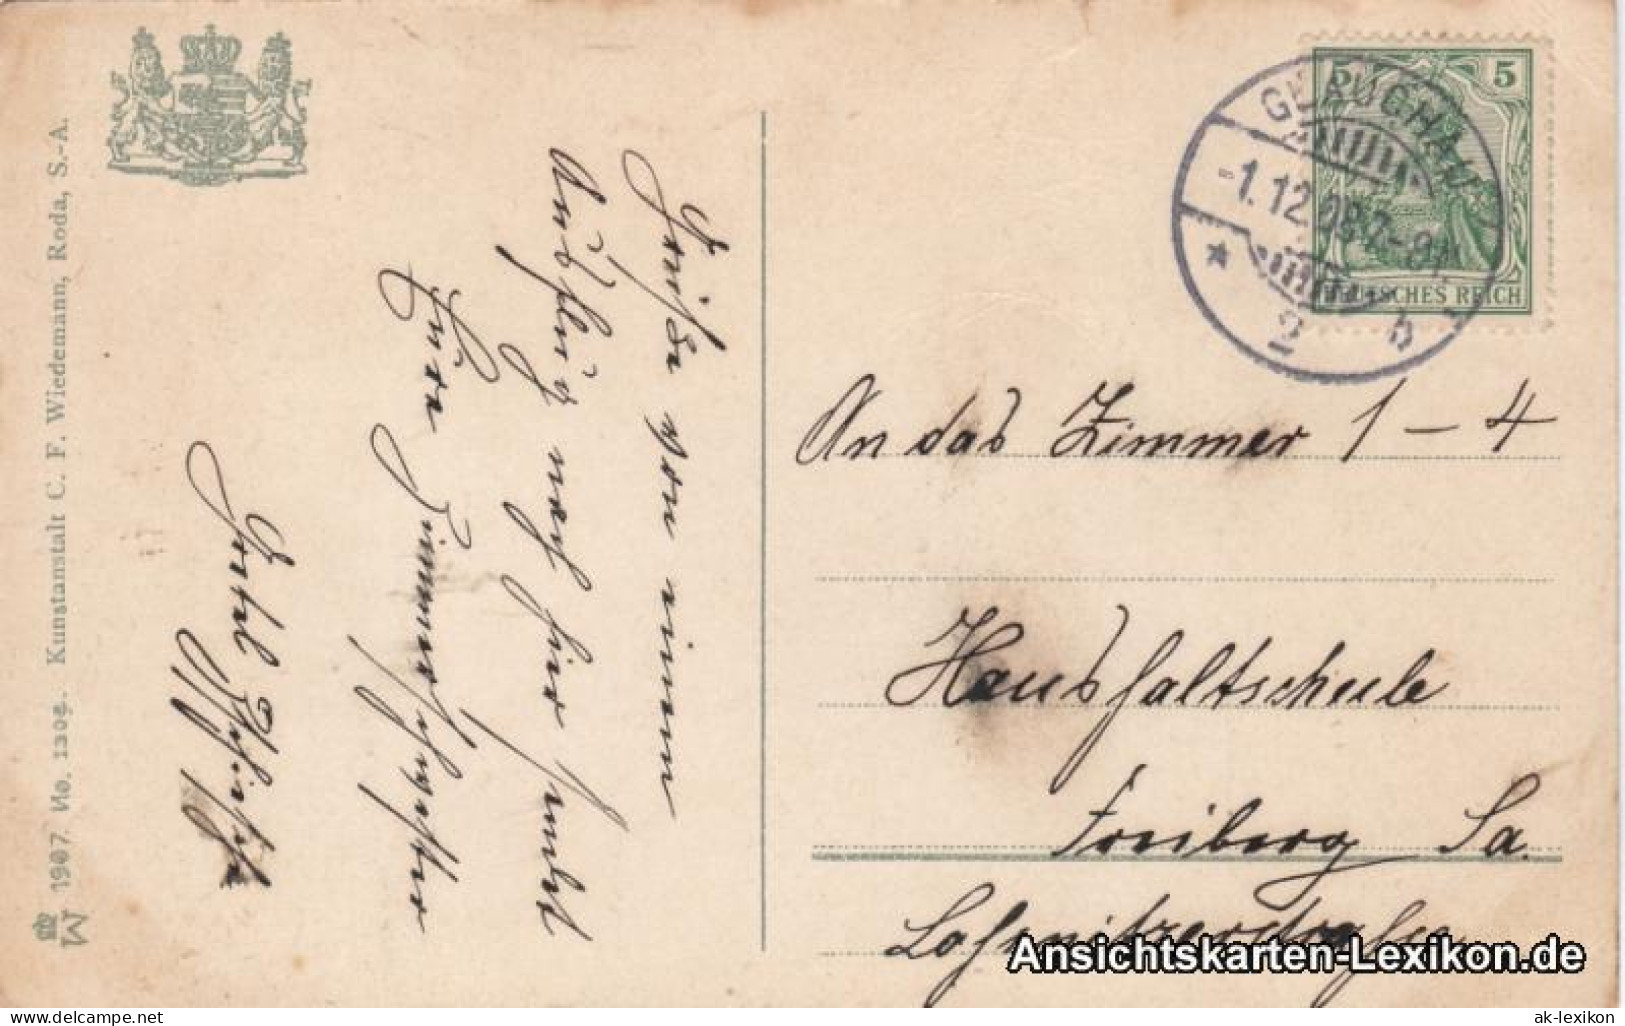 Grüße von einem
Ausflug nach hier sendet
Eure Zimmerschwester
W 1907. No. 1308. Kunstanstalt C. F. Wiedemann, Roda, S.-A.
5 5
DEUTSCHES REICH
GLAUCHAU
-1.12.08.7-8N.
* 2 b
An das Zimmer 1 – 4
Haushaltschule
Freiberg Sa.
Loßnitzerstraße
Ansichtskarten-Lexikon.de
www.delcampe.net
ak-lexikon